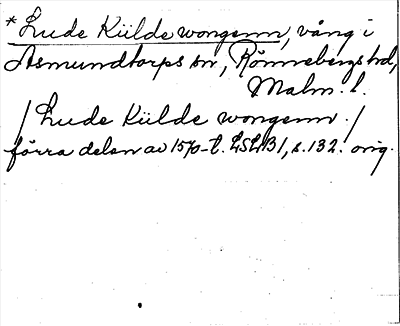 *Lude Külde wongenn, vång i
Asmundtorps sn, Rönnebergs hd,
Malm. l.
/Lude Külde wongenn./
förra delen av 1570-t. LSLB1, s. 132. orig.